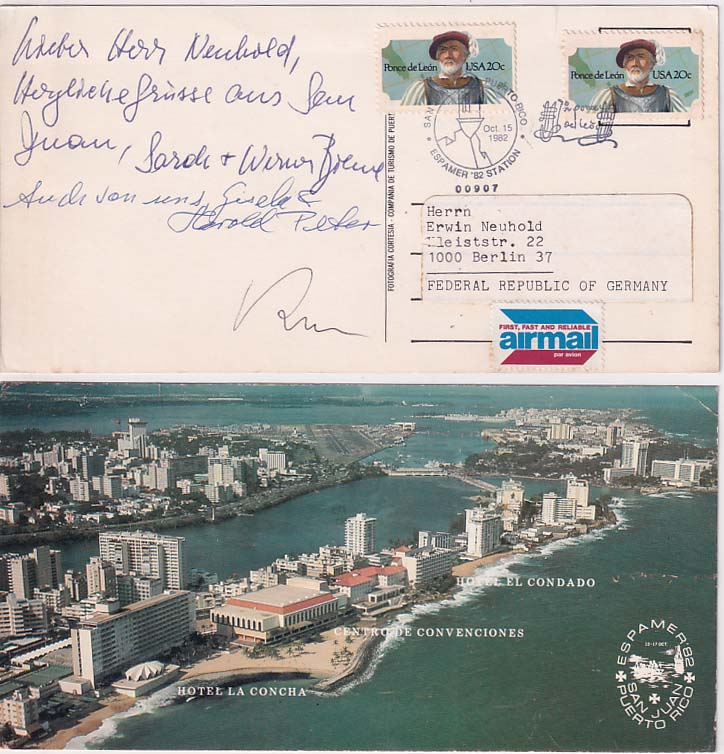 Lieber Herr Neuhold,
Herzliche Grüsse aus San
Juan, Sarah + Werner
Auch von uns, Gisela &
Harold Peter
Ponce de León USA 20c
Ponce de León USA 20c
SAN PUERTO RICO
Oct. 15
1982
ESPAMER '82 STATION
00907
FOTOGRAFIA CORTESIA - COMPANIA DE TURISMO DE PUERT
Herrn
Erwin Neuhold
Kleiststr. 22
1000 Berlin 37
FEDERAL REPUBLIC OF GERMANY
FIRST, FAST AND RELIABLE
airmail
par avion
HOTEL EL CONDADO
CENTRO DE CONVENCIONES
HOTEL LA CONCHA
ESPAMER '82
12-17 OCT.
SAN JUAN
PUERTO RICO